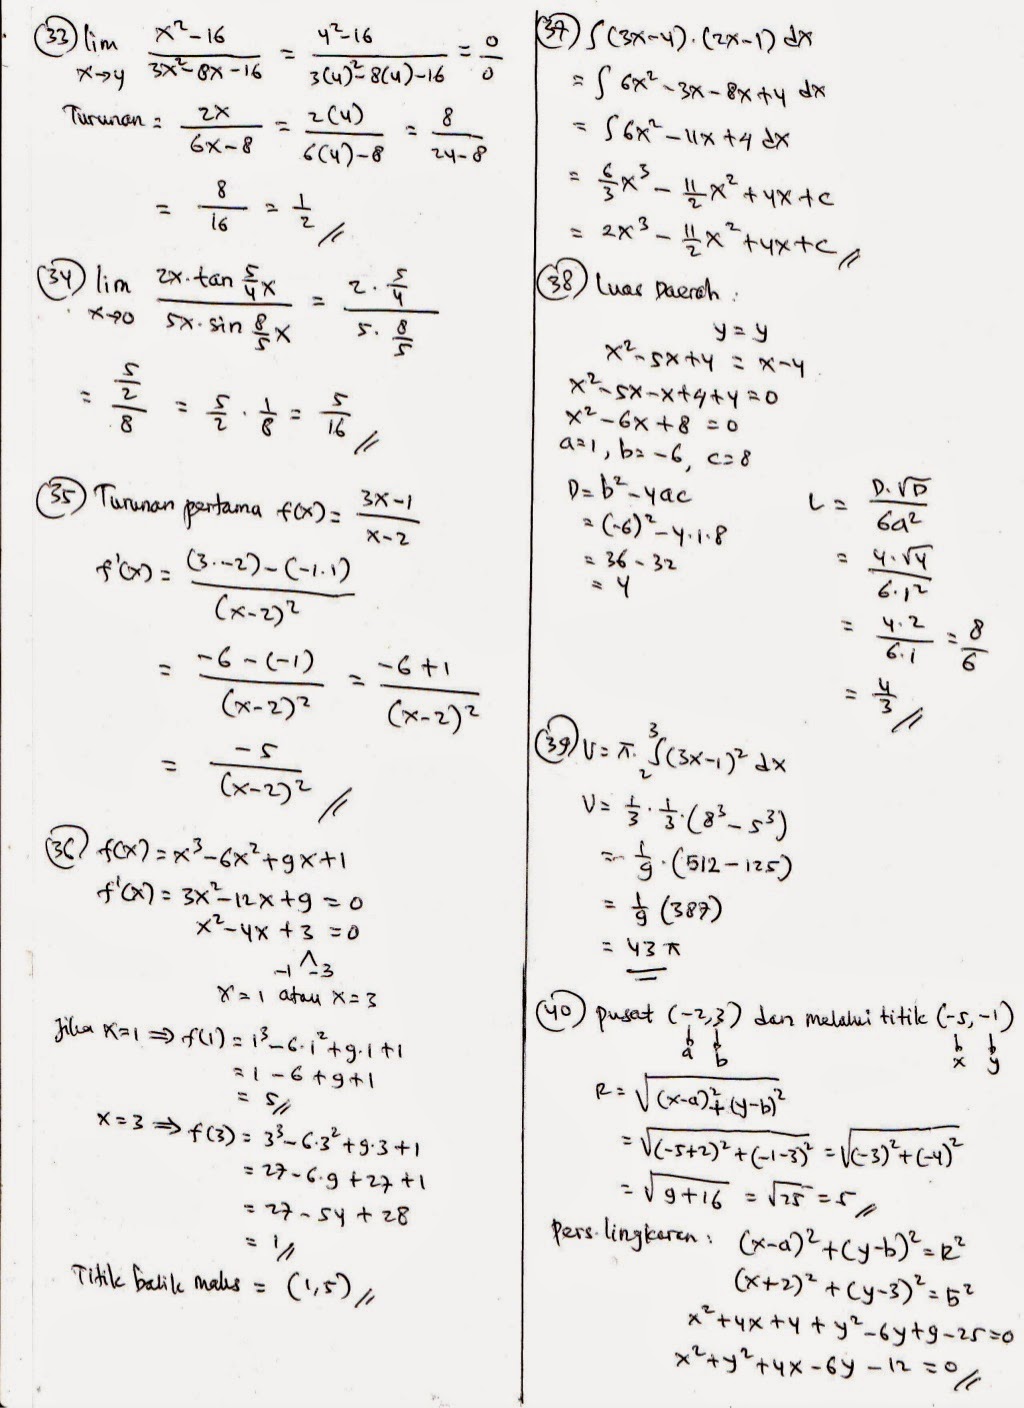 (33) lim x→4 (x²-16)/(3x²-8x-16) = (4²-16)/(3(4)²-8(4)-16) = 0/0
Turunan = 2x/(6x-8) = 2(4)/(6(4)-8) = 8/(24-8)
= 8/16 = 1/2 //
(34) lim x→0 (2x.tan 5/4 x)/(5x.sin 8/5 x) = (2. 5/4)/(5. 8/5)
= (5/2)/8 = 5/2 . 1/8 = 5/16 //
(35) Turunan pertama f(x) = (3x-1)/(x-2)
f'(x) = ((3.-2)-(-1.1))/(x-2)²
= (-6-(-1))/(x-2)² = (-6+1)/(x-2)²
= -5/(x-2)² //
(36) f(x) = x³-6x²+9x+1
f'(x) = 3x²-12x+9 = 0
x²-4x+3 = 0
-1 ^ -3
x=1 atau x=3
Jika x=1 ⇒ f(1) = 1³-6.1²+9.1+1
= 1-6+9+1
= 5 //
x=3 ⇒ f(3) = 3³-6.3²+9.3+1
= 27-6.9+27+1
= 27-54+28
= 1 //
Titik balik maks = (1,5) //
(37) ∫(3x-4).(2x-1) dx
= ∫ 6x²-3x-8x+4 dx
= ∫ 6x²-11x+4 dx
= 6/3 x³ - 11/2 x² + 4x + c
= 2x³ - 11/2 x² + 4x + c //
(38) Luas Daerah :
y = y
x²-5x+4 = x-4
x²-5x-x+4+4=0
x²-6x+8 = 0
a=1, b=-6, c=8
D = b²-4ac
= (-6)²-4.1.8
= 36-32
= 4
L = D.√D/6a²
= 4.√4/6.1²
= 4.2/6.1 = 8/6
= 4/3 //
(39) V = π. ₂∫³(3x-1)² dx
V = 1/3 . 1/3 .(8³-5³)
= 1/9 .(512-125)
= 1/9 (387)
= 43 π
(40) pusat (-2,3) dan melalui titik (-5,-1)
↓ ↓ ↓ ↓
a b x y
R = √(x-a)²+(y-b)²
= √(-5+2)²+(-1-3)² = √(-3)²+(-4)²
= √9+16 = √25 = 5 //
Pers.lingkaran : (x-a)²+(y-b)² = R²
(x+2)²+(y-3)² = 5²
x²+4x+4+y²-6y+9-25=0
x²+y²+4x-6y-12 = 0 //